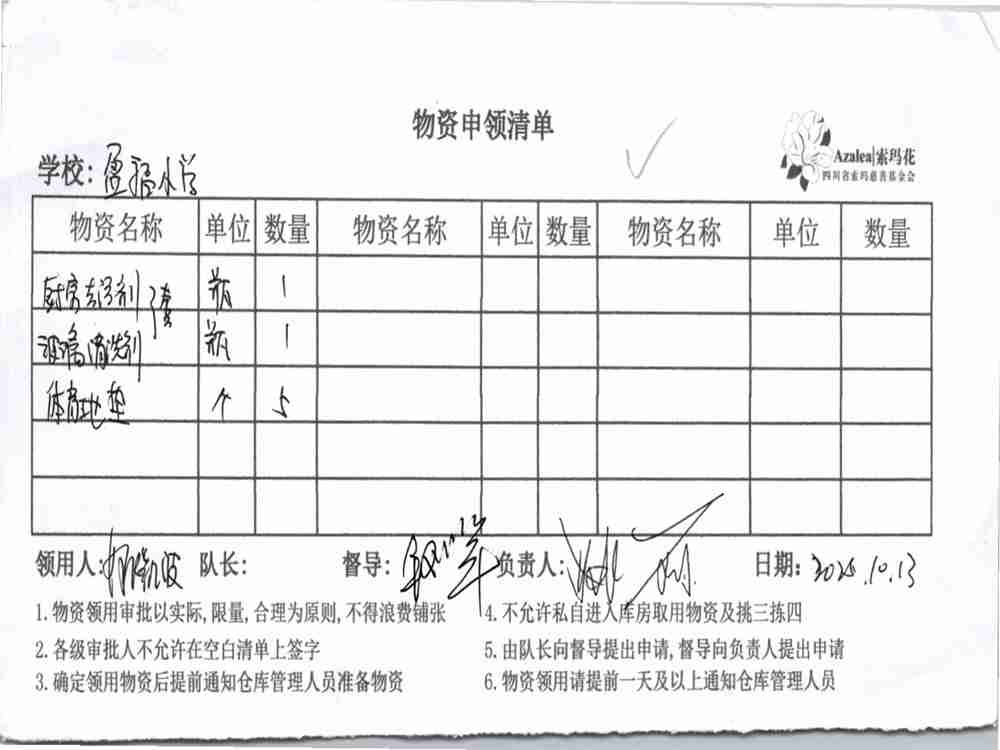 物资申领清单
Azalea|索玛花
四川省索玛慈善基金会
学校: 盈福小学
物资名称 单位 数量 物资名称 单位 数量 物资名称 单位 数量
厨房去污剂 瓶 1
玻璃清洗剂 瓶 1
体育地垫 个 5
领用人: 队长: 督导: 负责人: 日期: 2025.10.13
1.物资领用审批以实际,限量,合理为原则,不得浪费铺张
4.不允许私自进入库房取用物资及挑三拣四
2.各级审批人不允许在空白清单上签字
5.由队长向督导提出申请,督导向负责人提出申请
3.确定领用物资后提前通知仓库管理人员准备物资
6.物资领用请提前一天及以上通知仓库管理人员